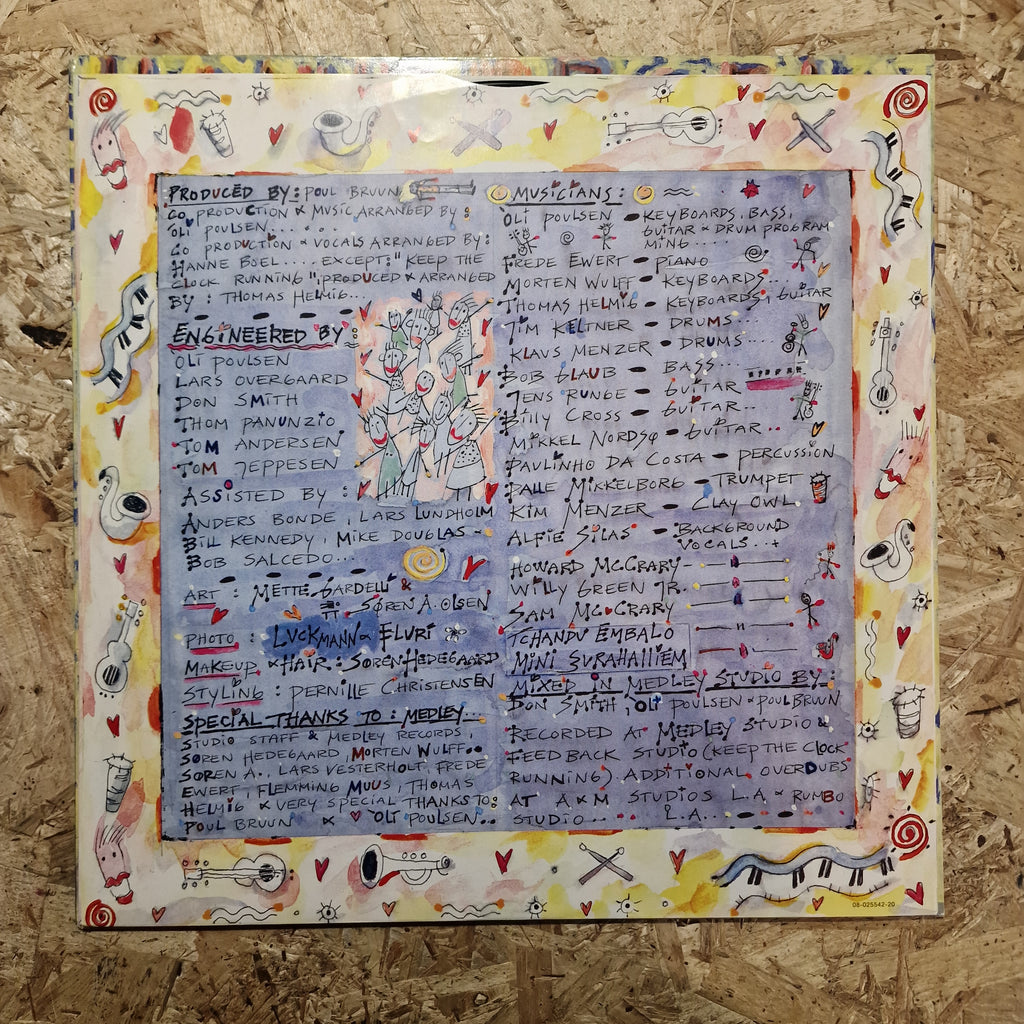 PRODUCED BY: POUL BRUUN
CO PRODUCTION & MUSIC ARRANGED BY:
OLI POULSEN.....
CO PRODUCTION & VOCALS ARRANGED BY:
HANNE BOEL.... EXCEPT: "KEEP THE
CLOCK RUNNING" PRODUCED & ARRANGED
BY: THOMAS HELMIG...
ENGINEERED BY:
OLI POULSEN
LARS OVERGAARD
DON SMITH
THOM PANUNZIO
TOM ANDERSEN
TOM JEPPESEN
ASSISTED BY:
ANDERS BONDE, LARS LUNDHOLM
BILL KENNEDY, MIKE DOUGLAS -
BOB SALCEDO...
ART: METTE GARDELLI &
SØREN A. OLSEN
PHOTO: LUCKMANN & ELURI
MAKEUP & HAIR: SØREN HEDEGAARD
STYLING: PERNILLE CHRISTENSEN
SPECIAL THANKS TO: MEDLEY...
STUDIO STAFF & MEDLEY RECORDS,
SØREN HEDEGAARD, MORTEN WULFF..
SØREN A., LARS VESTERHOLT, FREDE
EWERT, FLEMMING MUUS, THOMAS
HELMIG & VERY SPECIAL THANKS TO:
POUL BRUUN & OLI POULSEN..
MUSICIANS:
OLI POULSEN - KEYBOARDS, BASS,
GUITAR & DRUM PROGRAM
MING.....
FREDE EWERT - PIANO
MORTEN WULFF - KEYBOARDS...
THOMAS HELMIG - KEYBOARDS, GUITAR
JIM KELTNER - DRUMS...
KLAUS MENZER - DRUMS....
BOB GLAUB - BASS....
JENS RUNGE - GUITAR
BILLY CROSS - GUITAR..
MIKKEL NORDSØ - GUITAR..
PAULINHO DA COSTA - PERCUSSION
PALLE MIKKELBORG - TRUMPET
KIM MENZER - CLAY OWL
ALFIE SILAS - BACKGROUND
VOCALS..+
HOWARD MCCRARY -
WILLY GREEN JR.
SAM MCCRARY
TCHANDU EMBALO
MINI SURAHALLIEM
MIXED IN MEDLEY STUDIO BY:
DON SMITH, OLI POULSEN & POUL BRUUN
RECORDED AT MEDLEY STUDIO &
FEEDBACK STUDIO (KEEP THE CLOCK
RUNNING) ADDITIONAL OVERDUBS
AT A&M STUDIOS L.A & RUMBO
STUDIO... L.A..
08-025542-20